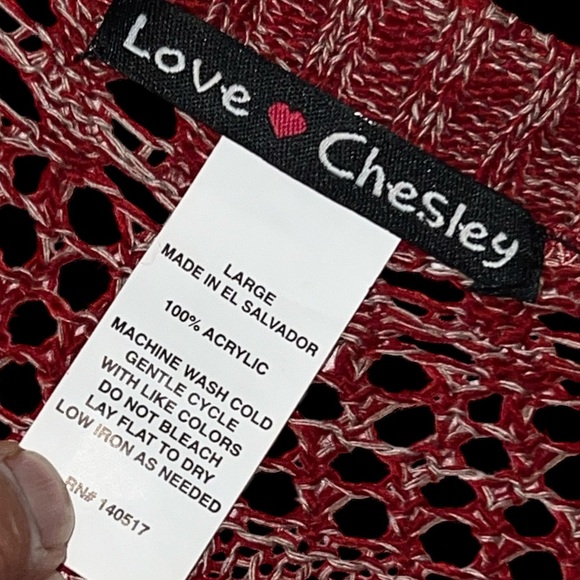 Love ♥ Chesley
LARGE
MADE IN EL SALVADOR
100% ACRYLIC
MACHINE WASH COLD
GENTLE CYCLE
WITH LIKE COLORS
DO NOT BLEACH
LAY FLAT TO DRY
LOW IRON AS NEEDED
RN# 140517